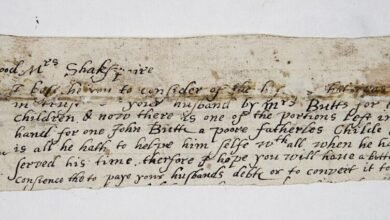 ood Mrs Shakspaire
I besehe you to consider of the
in trust your husband by Mrs Butts for
Children & now there is one of the portions lost in
hand for one John Butte a poore fatherles Childe
is all he hath to helpe him selfe wthall when he ha
served his time. therfore I hope you will have a bette
conscience the to paye your husbands debte or to convert it to